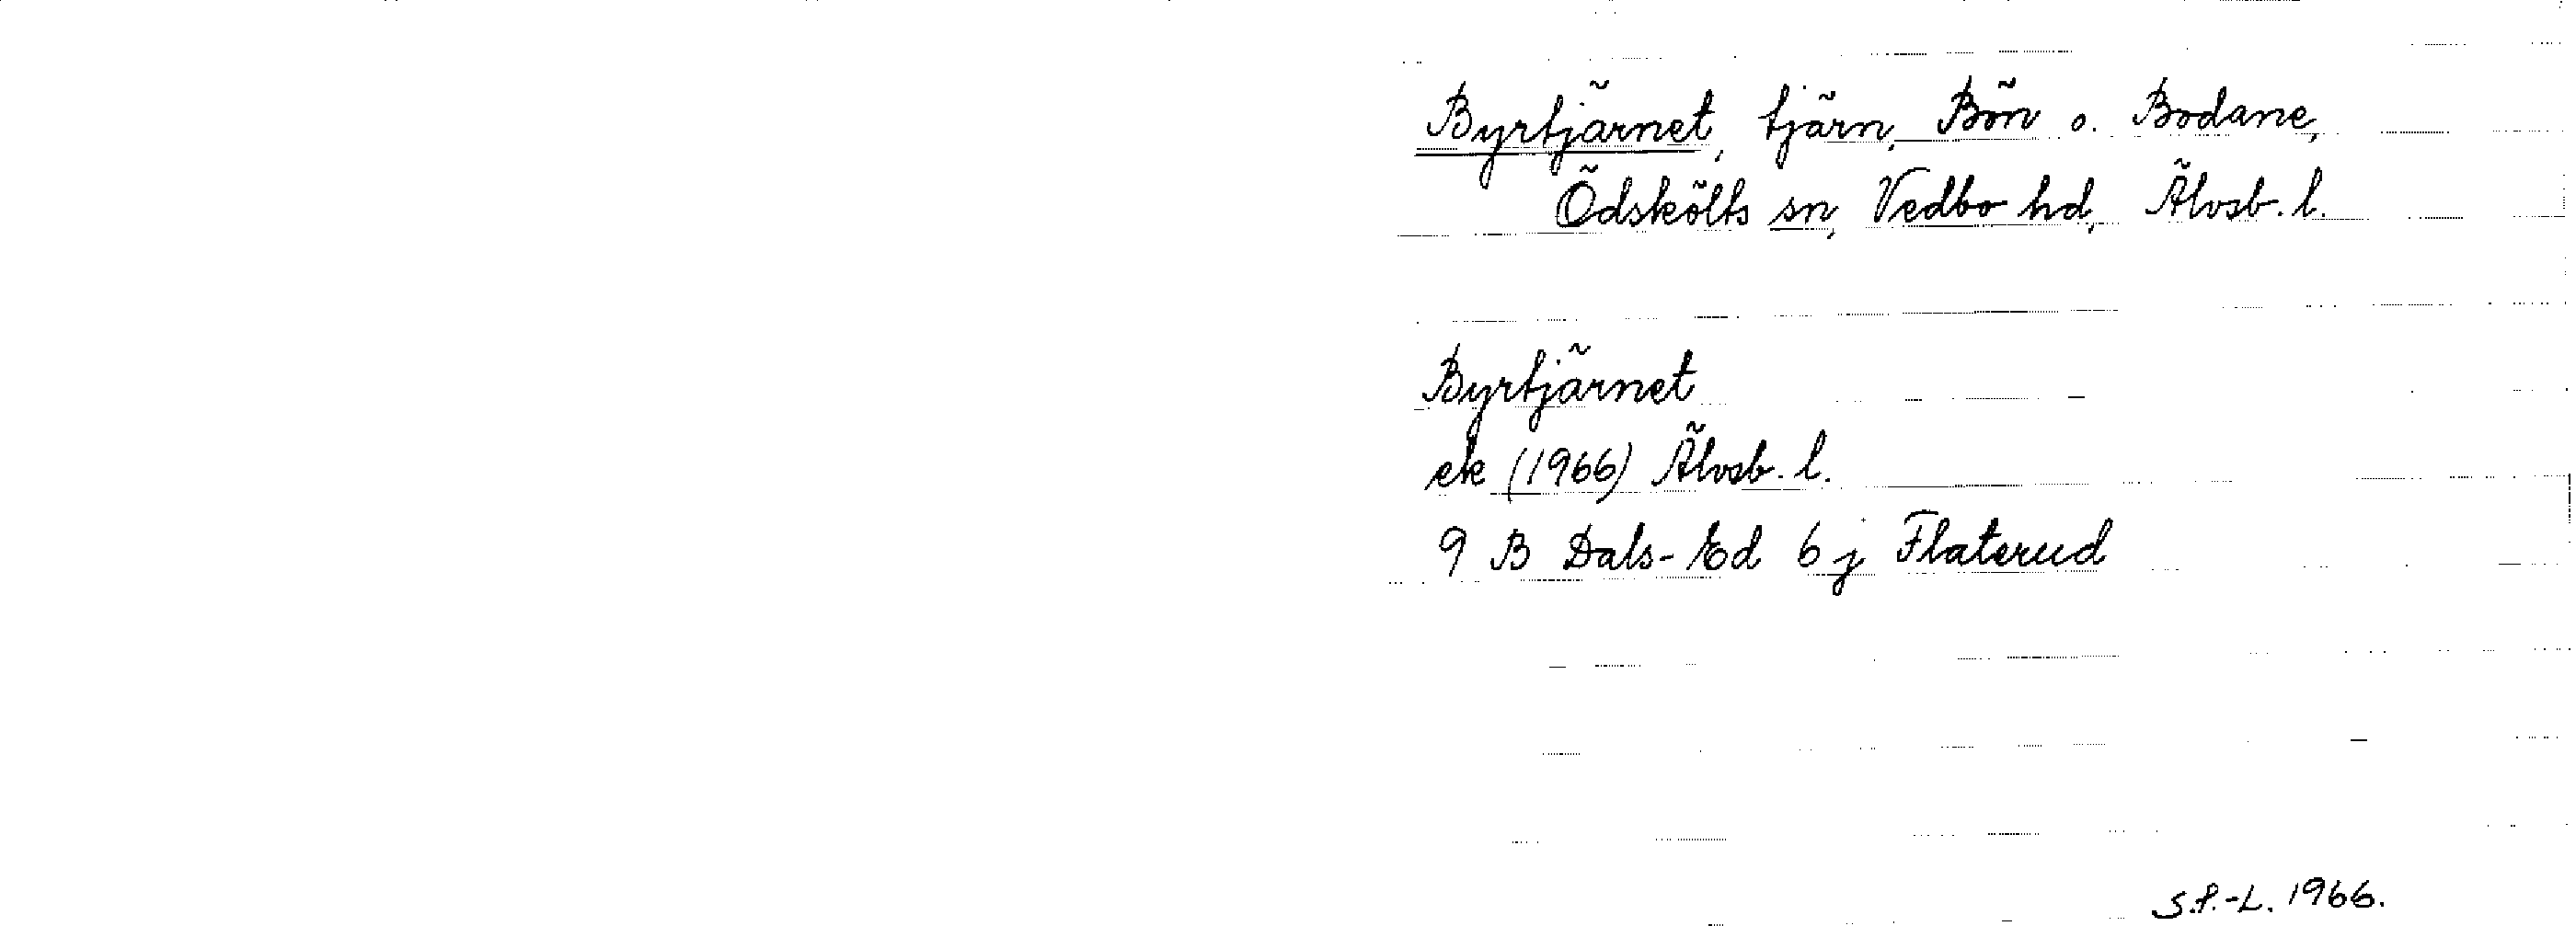 Byrtjärnet, tjärn, Bön o. Bodane,
Ödskölts sn, Vedbo hd, Älvsb. l.
Byrtjärnet
ek (1966) Älvsb. l.
9 B Dals-Ed 6 j Flaterud
S.P.-L. 1966.